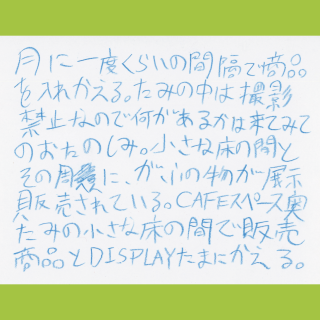 月に一度くらいの間隔で商品
を入れかえる。たみの中は撮影
禁止なので何があるかは来てみて
のおたのしみ。小さな床の間と
その周りに、がふの物が展示
販売されている。CAFEスペース奥
たみの小さな床の間で販売
商品とDISPLAYたまにかえる。